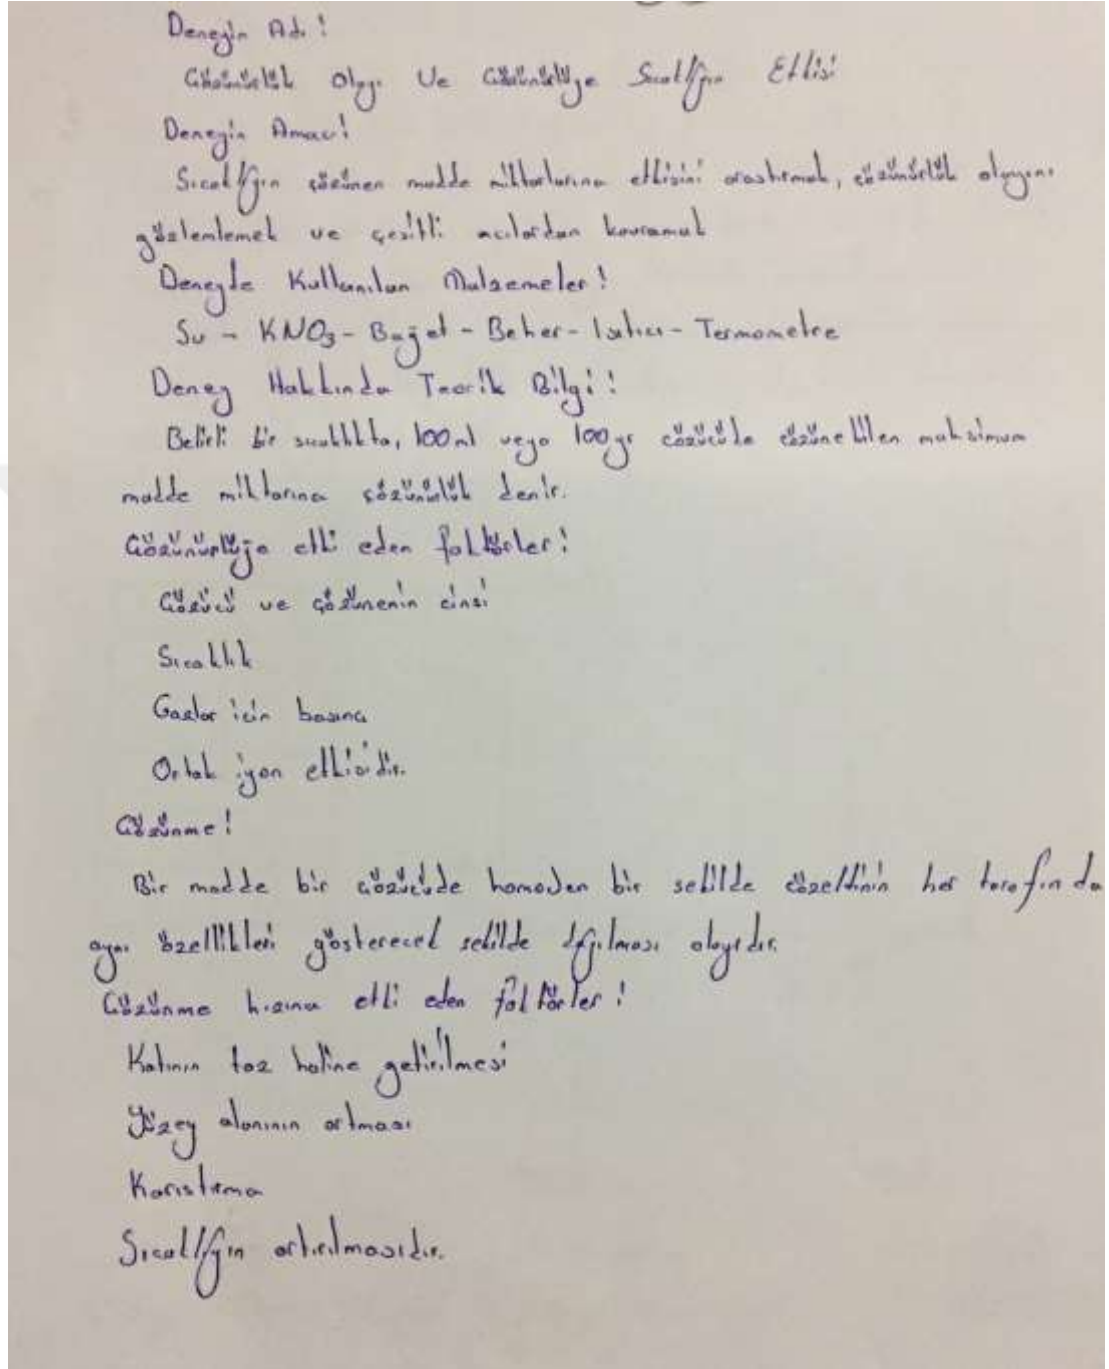 Deneyin Adı:
Çözünürlük Olayı Ve Çözünürlüğe Sıcaklığın Etkisi
Deneyin Amacı:
Sıcaklığın çözünen madde miktarlarına etkisini araştırmak, çözünürlük olayını
gözlemlemek ve çeşitli acılardan kavramak
Deneyde Kullanılan Malzemeler:
Su - KNO₃ - Baget - Beher - Isıtıcı - Termometre
Deney Hakkında Teorik Bilgi:
Belirli bir sıcaklıkta, 100ml veya 100gr çözücüde çözünebilen maksimum
madde miktarına çözünürlük denir.
Çözünürlüğe etki eden faktörler:
Çözücü ve çözünenin cinsi
Sıcaklık
Gazlar için basınç
Ortak iyon etkisidir.
Çözünme:
Bir madde bir çözücüde homojen bir şekilde çözeltinin her tarafında
aynı özellikleri gösterecek şekilde dağılması olayıdır.
Çözünme hızına etki eden faktörler:
Katının toz haline getirilmesi
Yüzey alanının artması
Karıştırma
Sıcaklığın artırılmasıdır.